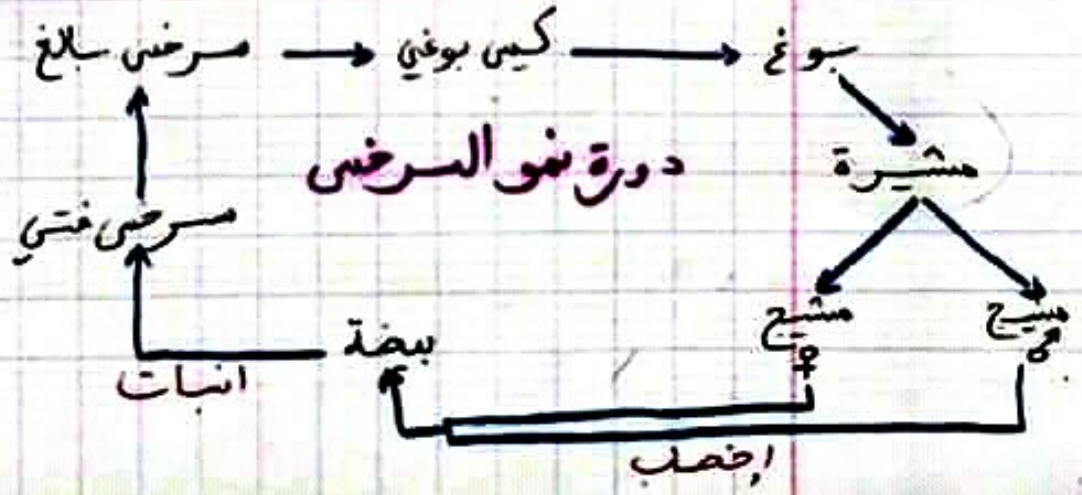 سرخس بالغ
كيس بوغي
بوغ
دورة نمو السرخس
مشيرة
سرخس فتي
مشيج ♀
مشيج ♂
بيضة
انبات
إخصاب